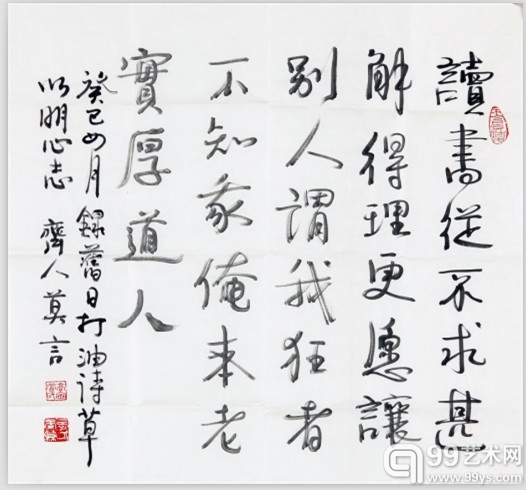 讀書從不求甚
解得理更愿讓
別人謂我狂者
不知我俺本老
實厚道人
癸巳四月錄舊日打油詩草
以明心志 齊人莫言
99艺术网
www.99ys.com